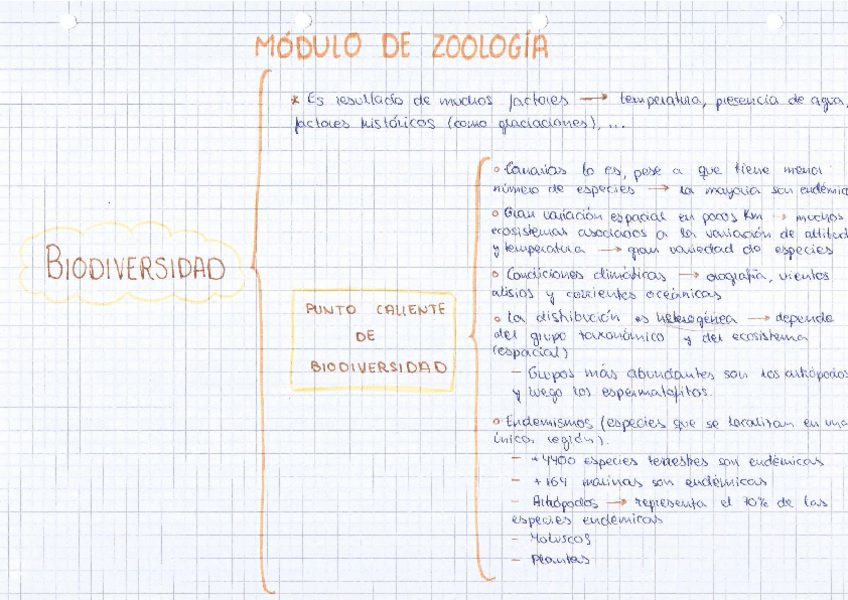 MÓDULO DE ZOOLOGÍA
BIODIVERSIDAD
* Es resultado de muchos factores → temperatura, presencia de agua,
factores históricos (como glaciaciones), ...
PUNTO CALIENTE
DE
BIODIVERSIDAD
o Canarias lo es, pese a que tiene menor
número de especies → la mayoría son endémic
o Gran variación espacial en pocos Km → muchos
ecosistemas asociados a la variación de altitud
y temperatura → gran variedad de especies
o Condiciones climáticas → orografía, vientos
alisios y corrientes oceánicas
o La distribución es heterogénea → depende
del grupo taxonómico y del ecosistema
(espacial)
- Grupos más abundantes son los artrópodos
y luego los espermatofitos.
o Endemismos (especies que se localizan en una
única región).
- +4400 especies terrestres son endémicas
- +164 marinas son endémicas
- Artrópodos → representa el 70% de las
especies endémicas
- Moluscos
- Plantas